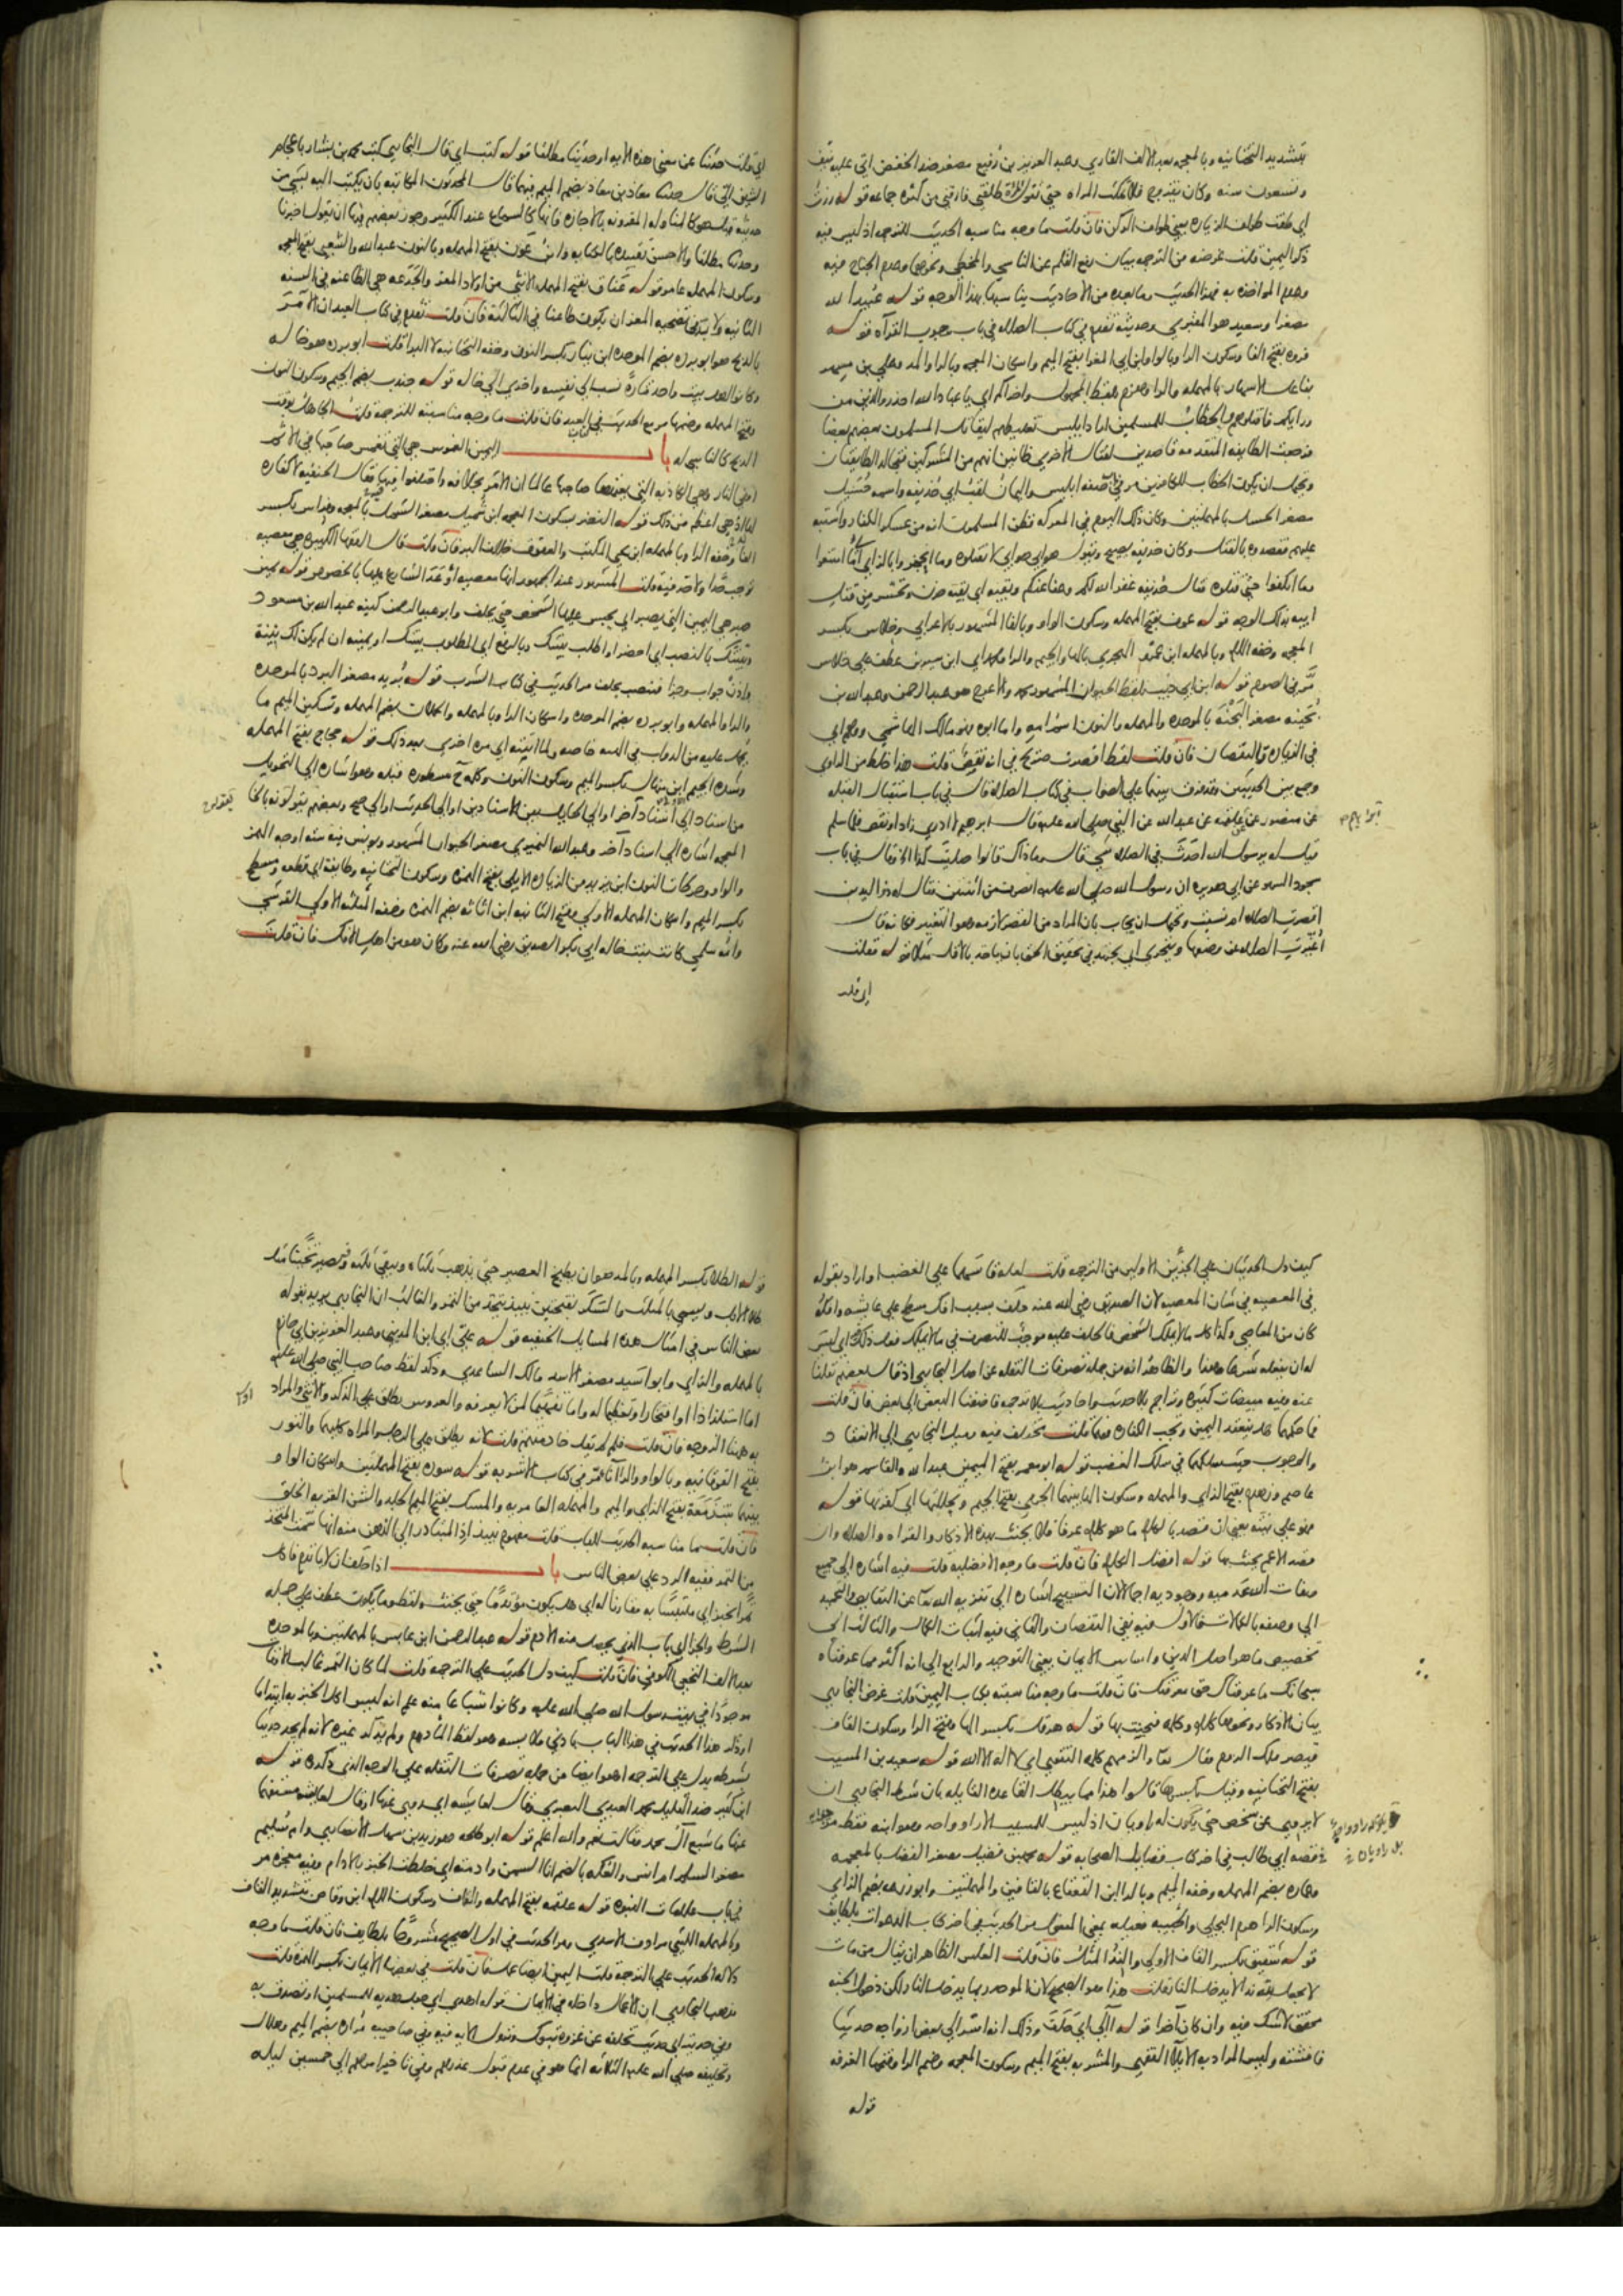 بتشديد التحتانيه وبالمعجمه بعد الالف القاري وعبد العزيز بن رفيع مصغر ضد الخفض اتى عليه نيف
وتسعون سنه وكان يتزوج فلا تمكث المراه حتى تقول طلقني فارقني من كثرة جماعه قوله زرت
اي طفت طواف الزياره يعني طواف الركن فان قلت ما وجه مناسبه الحديث للترجمه اذ ليس فيه
ذكر اليمين قلت غرضه من الترجمه بيان رفع القلم عن الناسي والمخطي ونحوهما وعدم الجناح فيه
وعدم المواخذه به فهذا الحديث وما بعده من الاحاديث يناسبها بهذا الوجه قوله عبيد الله
مصغرا وسعيد هو المقبري وحديثه تقدم في كتاب الصلاه في باب وجوب القرآه قوله
فروه بفتح الفا وسكون الرا وبالواو ابن ابي المغرا بفتح الميم واسكان المعجمه وبالرا والمد وعلي بن مسهر
بفاعل الاسهار بالمهمله والرا وهزم بلفظ المجهول واخراكم اي يا عباد الله احذروا الذين من
ورايكم فاقتلوهم والخطاب للمسلمين اراد ابليس تغليطهم ليقاتل المسلمون بعضهم بعضا
فرجعت الطايفه المتقدمه قاصدين لقتال الاخرى ظانين انهم من المشركين فتجالد الطايفتان
ويحتمل ان يكون الخطاب للكافرين مر في صفه ابليس واليمان لقب ابي حذيفه واسمه حسيل
مصغر الحسل بالمهملتين وكان ذلك اليوم في المعركه فظن المسلمون انه من عسكر الكفار واشتبه
عليهم فقصدوه بالقتل وكان حذيفه يصيح ويقول هو ابي هو ابي لا تقتلوه وما انحجزوا بالزاي اي ما امتنعوا
وما انكفوا حتى قتلوه فقال حذيفه غفر الله لكم وعفا عنكم وبقيه اي بقيه حزن وتحسر من قتل
ابيه بذلك الوجه قوله عوف بفتح المهمله وسكون الواو وبالفا المشهور بالاعرابي وخلاس بكسر
المعجمه وخفه اللام وبالمهمله ابن عمرو الهجري بالها والجيم والرا ومحمد اي ابن سيرين عطف على خلاس
مر في الصوم قوله ابن ابي ذيب بلفظ الحيوان المشهور محمد والاعرج هو عبد الرحمن وعبد الله بن
بحينه مصغر البحنه بالموحده والمهمله والنون اسم امه واما ابوه فهو مالك الهاشمي ووهم اي
في الزياده والنقصان فان قلت لفظ اقصرت صريح في انه نقص قلت هذا خلط من الراوي
وجمع بين الحديثين وقد فرق بينهما على الصواب في كتاب الصلاه قال في باب استقبال القبله
عن منصور عن علقمه عن عبد الله عن النبي صلى الله عليه قال ابرهيم لا ادري زاد او نقص فلما سلم
قيل له يرسول الله احدث في الصلاه شي قال وما ذاك قالوا صليت كذا الخ وقال في باب
سجود السهو عن ابي هريره ان رسول الله صلى الله عليه انصرف من اثنتين فقال له ذو اليدين
اقصرت الصلاه ام نسيت ويحتمل ان يجاب بان المراد من القصر لازمه وهو التغير فكانه قال
اغيرت الصلاه عن وضعها ويتحرى اي يجتهد في تحقيق الحق بان ياخذ بالاقل مثلا قوله فقلت
اي قلت حدثنا عن معنى هذه الايه او حديثنا مطلقا قوله كتب اي قال البخاري كتب محمد بن بشار باعجام
الشين الي قال حدثنا معاذ بن معاذ بضم الميم فيهما قال المحدثون المكاتبه بان يكتب اليه بشي من
حديثه قيل هو كالمناوله المقرونه بالاجازه فانها كالسماع عند الكثير وجوز بعضهم فيها ان يقول اخبرنا
وحدثنا مطلقا والاحسن تقييده بالكتابه وابن عون بفتح المهمله وبالنون عبد الله والشعبي بفتح المعجمه
وسكون المهمله عامر قوله عناق بفتح المهمله الانثى من اولاد المعز والجذعه هي الطاعنه في السنه
الثانيه ولا بد في تضحيه المعز ان يكون طاعنا في الثالثة فان قلت تقدم في كتاب العيد ان الآمر
بالذبح هو ابو برده بضم الموحده ابن نيار بكسر النون وخفه التحتانيه لا البرا قلت ابو برده هو خاله
وكانوا اهل بيت واحد فتارة نسب الى نفسه واخرى الى خاله قوله جندب بضم الجيم وسكون النون
وفتح المهمله وضمها مر مع الحديث في العيد فان قلت ما وجه مناسبته للترجمه قلت الجاهل بوقت
الذبح كالناسي له باب اليمين الغموس هي التي تغمس صاحبها في الاثم
او في النار وهي الكاذبه التي يتعمدها صاحبها عالما ان الامر بخلافه واختلفوا فيها فقال الحنفيه لا كفاره
لها اذ هي اعظم من ذلك قوله النضر بسكون المعجمه ابن شميل مصغر الشمل بالمعجمه وفراس بكسر
الفا وخفه الرا وبالمهمله ابن يحيى المكتب والعقوق خلاف البر فان قلت قال الفقها الكبيره هي معصيه
توجب حدا ولا حد فيه قلت المشهور عند الجمهور انها معصيه اوعد الشارع عليها بالخصوص قوله يمين
صبر هي اليمين التي يصبر اي يحبس عليها الشخص حتى يحلف وابو عبد الرحمن كنيه عبد الله بن مسعود
وبينتك بالنصب اي احضر او اطلب بينتك وبالرفع اي المطلوب بينتك او يمينه ان لم يكن لك بينة
واذن جواب وجزا فينصب يحلف مر الحديث في كتاب الشرب قوله بريد مصغر البرد بالموحده
والرا والمهمله وابو برده بضم الموحده واسكان الرا وبالمهمله والحملان بضم المهمله وتسكين الميم ما
يحمل عليه من الدواب في الهبه خاصه ولما اتيته اي مره اخرى بعد ذلك قوله حجاج بفتح المهمله
وشده الجيم ابن منهال بكسر الميم وسكون النون وكلمه ح مسطوره قبله وهو اشاره الى التحويل
من اسناد الى اسناد آخر او الى الحايل بين الاسنادين او الى الحديث او الى صح وبعضهم يقولونه بالخا
المعجمه اشاره الى اسناد آخر وعبد الله النميري مصغر الحيوان المشهور ويونس فيه سته اوجه الهمز
والواو وحركات النون ابن يزيد من الزياده الايلي بفتح الهمزه وسكون التحتانيه وطايفة اي قطعه ومسطح
بكسر الميم واسكان المهمله الاولى وفتح الثانيه ابن اثاثه بضم الهمزه وخفه المثلثه الاولى القرشي
وامه سلمى كانت بنت خاله ابي بكر الصديق رضي الله عنه وكان هو من اهل الافك فان قلت
كيف دل الحديثان على الجزئين الاولين من الترجمه قلت لعله قاسهما على الغضب او اراد بقوله
في المعصيه في شان المعصيه لان الصديق رضي الله عنه حلف بسبب افك مسطح على عايشه وافكه
كان من المعاصي وكذا كل ما لا يملك الشخص فالحلف عليه موجب للتصرف في ما لا يملك فعل ذلك اي ليس
له ان يفعله شرعا والظاهر انه من جمله تصرفات النقله عن اصل البخاري اذ قال بعضهم نقلنا
عنه وفيه مبيضات كثيره وتراجم بلا حديث واحاديث بلا ترجمه فاضفنا البعض الى بعض فان قلت
فما حكمها هل ينعقد اليمين وتجب الكفاره فيها قلت مختلف فيه وميل البخاري الى الانعقاد
والوجوب حيث سلكهما في سلك الغضب قوله ابو معمر بفتح الميمين عبد الله والقاسم هو ابن
عاصم وزهدم بفتح الزاي والمهمله وسكون الها بينهما الجرمي بفتح الجيم وتحللتها اي كفرتها قوله
فهو على نيته يعني ان قصد بالكلام ما هو كلام عرفا فلا يحنث بهذه الاذكار والقراه والصلاه وان
قصد الاعم يحنث بها قوله افضل الكلام فان قلت ما وجه الافضليه قلت فيه اشاره الى جميع
صفات الله عدميه ووجوديه اجمالا لان التسبيح اشاره الى تنزيه الله تعالى عن النقايص والتحميد
الى وصفه بالكمالات فالاول فيه نفي النقصان والثاني فيه اثبات الكمال والثالث الى
تخصيص ما هو اصل الدين واساس الايمان يعني التوحيد والرابع الى انه اكثر مما عرفناه
سبحانك ما عرفناك حق معرفتك فان قلت ما وجه مناسبته بكتاب اليمين قلت غرض البخاري
بيان الاذكار ونحوها كلام وكلمه فيحنث بها قوله هرقل بكسر الها وفتح الرا وسكون القاف
قيصر ملك الروم فقال تعالى والزمهم كلمه التقوى اي لا اله الا الله قوله سعيد بن المسيب
بفتح التحتانيه وقيل بكسرها قالوا هذا مما يبطل القاعده القايله بان شرط البخاري ان
لا يروي عن شخص حتى يكون له راويان اذ ليس للمسيب الا راو واحد وهو ابنه فقط مر
قصه ابي طالب في اخر كتاب فضايل الصحابه قوله محمد بن فضيل مصغر الفضل بالمعجمه
وعماره بضم المهمله وخفه الميم وبالرا ابن القعقاع بالقافين والمهملتين وابو زرعه بضم الزاي
وسكون الرا هرم البجلي والحبيبه فعيله بمعنى المفعول مر الحديث في اخر كتاب الدعوات بلطايف
قوله شقيق بكسر القاف الاولى والند المثل فان قلت العكس الظاهر ان يقال من مات
لا يجعل لله ندا لا يدخل النار قلت هذا هو الصحيح لان الموحد ربما يدخل النار لكن دخول الجنه
محقق لا شك فيه وان كان آخرا قوله آلى اي حلف وذلك انه اسر الى بعض ازواجه حديثا
فافشته وليس المراد به الايلا الفقهي والمشربه بفتح الميم وسكون المعجمه وضم الرا وفتحها الغرفه
قوله
قوله الطلا بكسر المهمله وبالمد هو ان يطبخ العصير حتى يذهب ثلثاه ويبقى ثلثه ويصير ثخينا مثل
طلا الابل ويسمى بالمثلث والسكر بفتحتين نبيذ يتخذ من التمر والغالب ان البخاري يريد بقوله
بعض الناس في امثال هذه المسايل الحنفيه قوله علي اي ابن المديني وعبد العزيز بن ابي حازم
بالمهمله والزاي وابو اسيد مصغر الاسد مالك الساعدي وذكر لفظ صاحب النبي صلى الله عليه
اما استلذاذا او افتخارا وتعظيما له واما تفهيما لمن لا يعرفه والعروس يطلق على الذكر والانثى والمراد
به هنا الزوجه فان قلت فلم لم يقل خادمتهم قلت لانه يطلق على الرجل والمراه كليهما والتور
بفتح الفوقانيه وبالواو والرا اناء مر في كتاب الاشربه قوله سوده بفتح المهملتين واسكان الواو
بينهما بنت زمعة بفتح الزاي والميم والمهمله العامريه والمسك بفتح الميم الجلد والشن القربه الخلق
فان قلت ما مناسبه الحديث للباب قلت مفهوم نبيذ اذ المتبادر الى الذهن منه انها تمر المتخذ
من التمر ففيه الرد على بعض الناس باب اذا حلف ان لا ياتدم فاكل
تمرا بخبز اي ملتبسا به مقارنا له اي هل يكون مؤتدما حتى يحنث ولفظ وما يكون عطف على جمله
الشرط والجزا اي باب الذي يحصل منه الادم قوله عبد الرحمن ابن عابس بالمهملتين وبالموحده
بعد الالف النخعي الكوفي فان قلت كيف دل الحديث على الترجمه قلت لما كان التمر غالب الاوقات
موجودا في بيت رسول الله صلى الله عليه وكانوا شباعا منه علم انه ليس اكل الخبز به ائتداما
او ذكر هذا الحديث في هذا الباب بادنى ملابسه وهو لفظ المادوم ولم يذكر غيره لانه لم يجد حديثا
بشرطه يدل على الترجمه او هو ايضا من جمله تصرفات النقله على الوجه الذي ذكروه قوله
ابن كثير ضد القليل محمد العبدي البصري وقال لعايشه اي روى عنها او قال لعايشه مستفهما
عنها ما شبع آل محمد فقالت نعم والله اعلم قوله ابو طلحه هو زيد بن سهل الانصاري وام سليم
مصغر السلم ام انس والعكه بالضم اناء السمن وادمته اي خلطت الخبز بالادام وفيه معجزه مر
في باب علامات النبوه قوله علقمه بفتح المهمله والقاف وسكون اللام ابن وقاص بتشديد القاف
وبالمهمله الليثي مرادف الاسدي ومر الحديث في اول الصحيح مشروحا بلطايف فان قلت ما وجه
دلاله الحديث على الترجمه قلت اليمين ايضا عمل فان قلت في بعضها الايمان بكسر الهمزه قلت
مذهب البخاري ان الاعمال داخله في الايمان قوله اهدى اي جعل هديه للمسلمين او تصدق به
وفي حديثه اي حديث تخلفه عن غزوه تبوك ونزول الايه فيه وفي صاحبيه مراره بضم الميم وهلال
وتخليفه صلى الله عليه الثلاثه انما هو في عدم قبول عذرهم وفي تاخير امرهم الى خمسين ليله